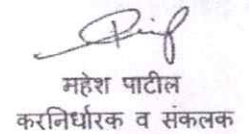 महेश पाटील
करनिर्धारक व संकलक